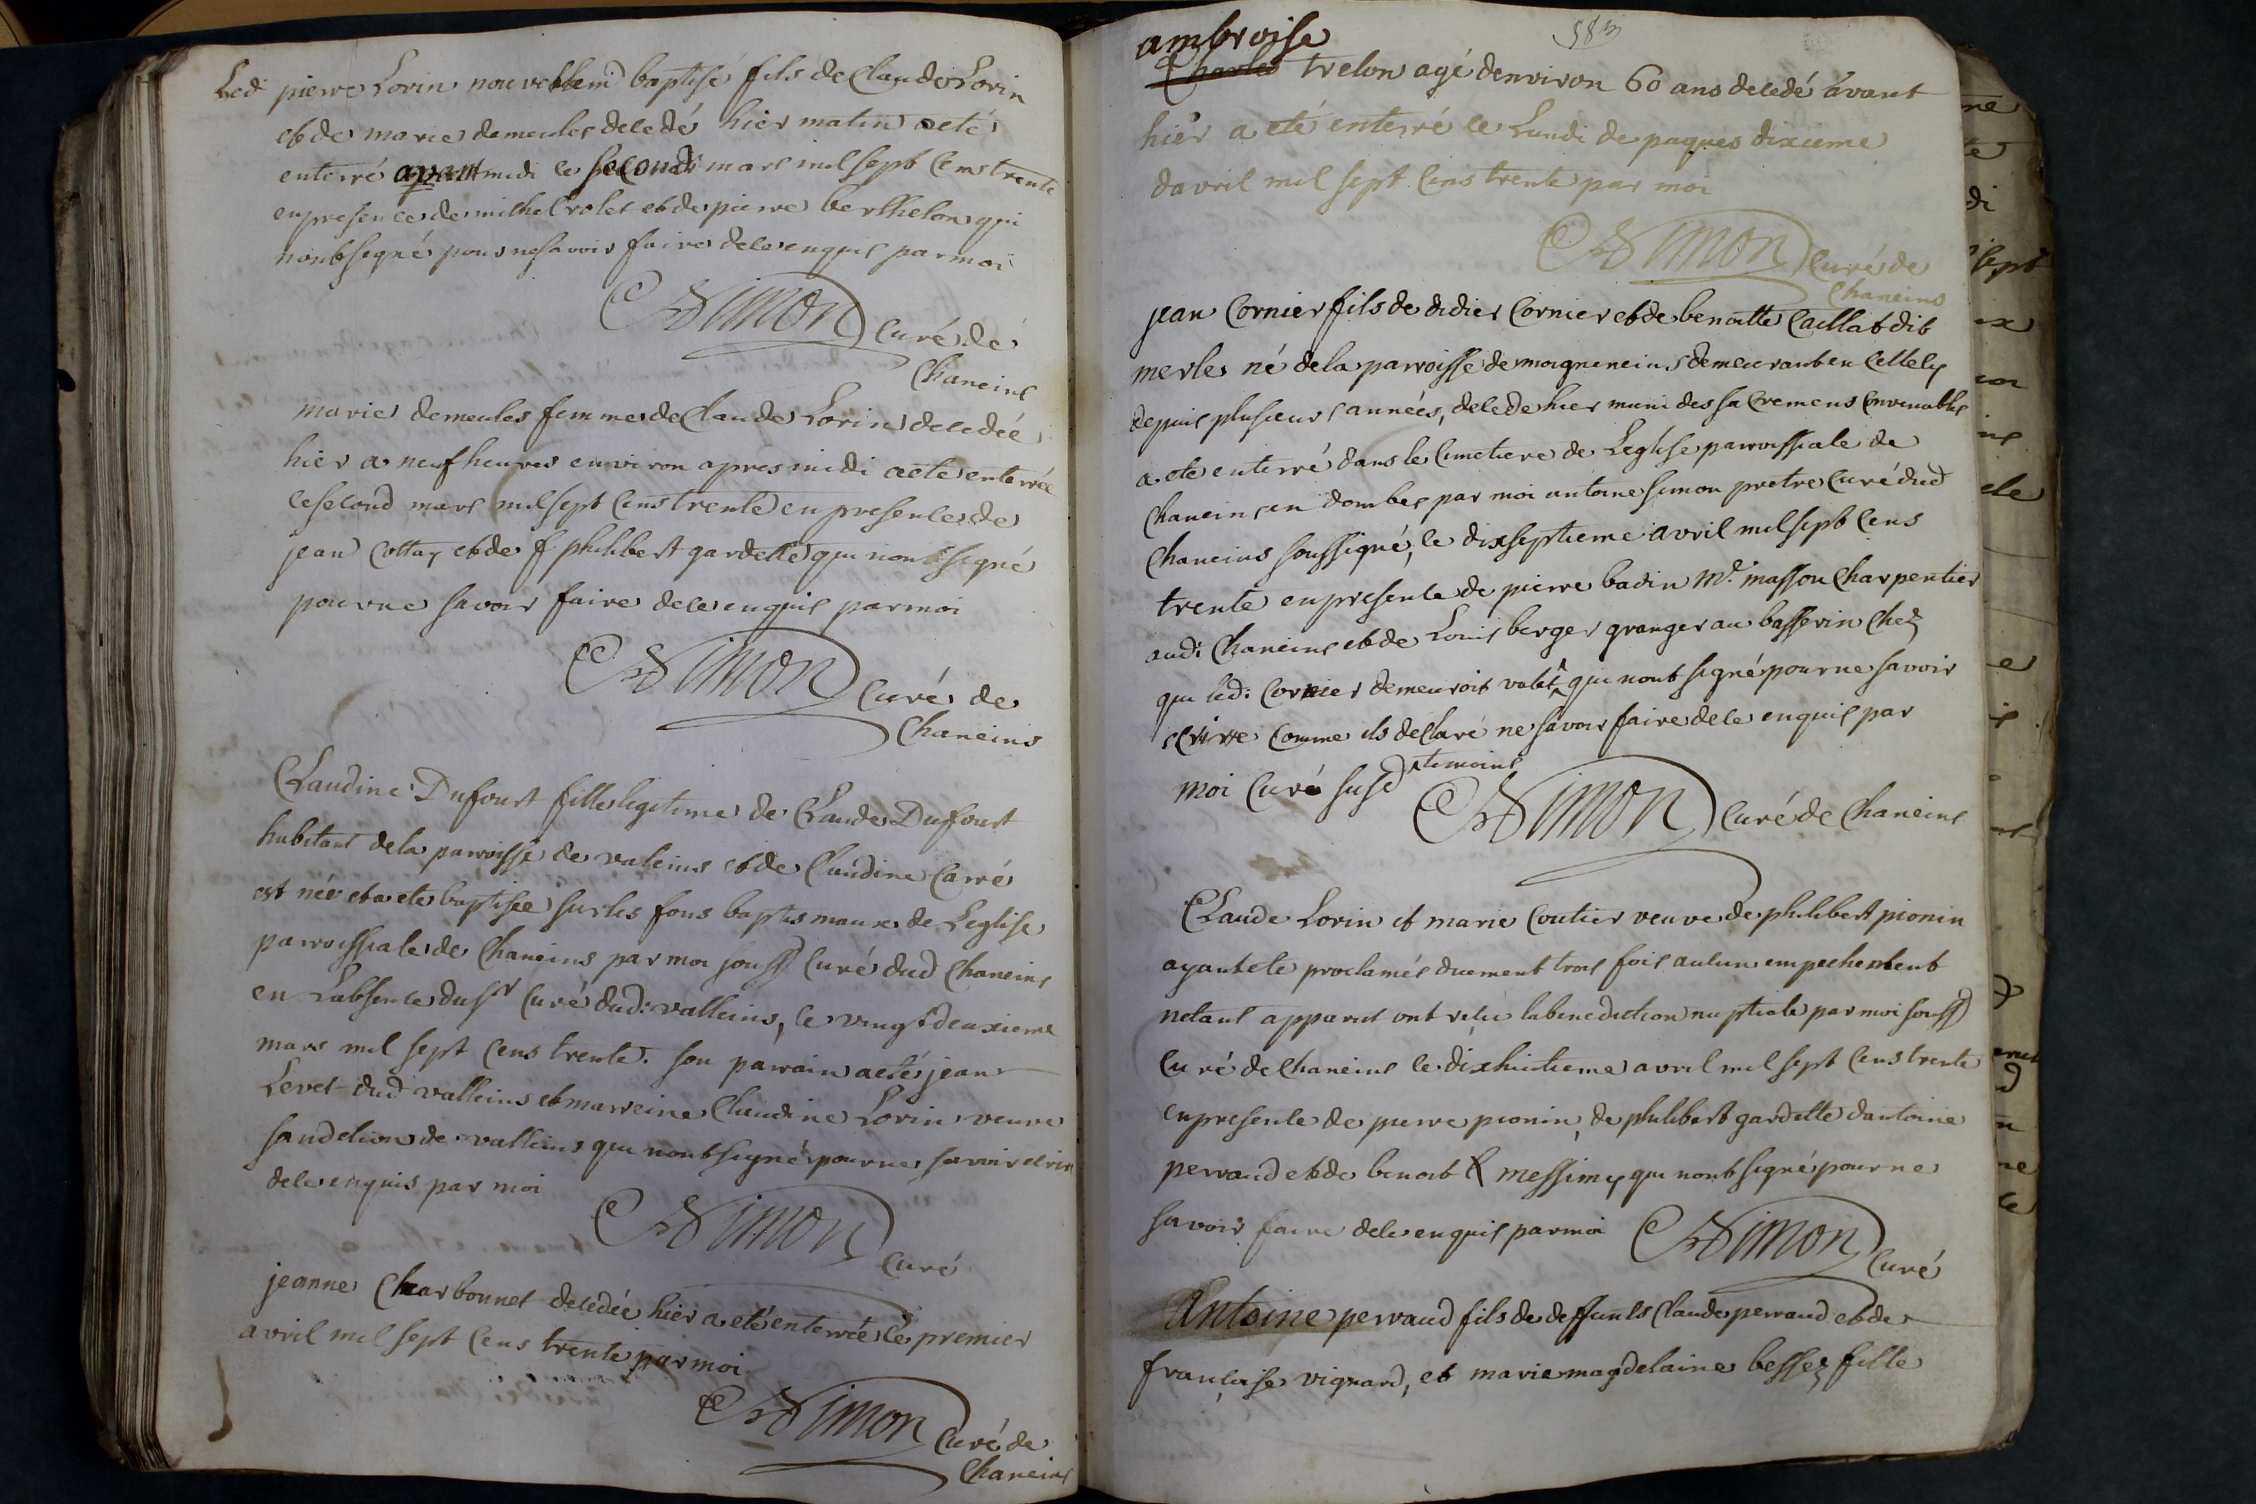 Led: pierre Lorin nouvellemt baptisé fils de Claude Lorin
et de marie demeules decedé hier matin a eté
enterré apres midi le second mars mil sept cens trente
en presence de michel rolet et de pierre berthelon qui
n'ont signé pour ne savoir faire de ce enquis par moi
Simon curé de
Chaneins
marie demeules femme de Claude Lorin decedée
hier a neuf heures environ apres midi a eté enterrée
le second mars mil sept cens trente en presence de
jean Cottay et de philibert gardette qui n'ont signé
pour ne savoir faire de ce enquis par moi
Simon curé de
Chaneins
Claudine Dufourt fille legitime de Claude Dufourt
habitant de la parroisse de valeins et de Claudine Carré
est née et a eté baptisée sur les fons baptismaux de Leglise
parroissiale de Chaneins par moi souss curé dud Chaneins
en Labsence du sr curé dud: valleins, le vingt deuxieme
mars mil sept cens trente. son parrain a eté jean
Levet dud valleins et marreine Claudine Lorin veuve
sandelion de valleins qui n'ont signé pour ne savoir ecrire
de ce enquis par moi
Simon curé
jeanne Charbonnet decedée hier a eté enterrée le premier
avril mil sept cens trente par moi
Simon curé de
Chaneins
583
ambroise
Charles trelon agé denviron 60 ans decedé avant
hier a eté enterré le Lundi de paques dixieme
davril mil sept cens trente par moi
Simon curé de
Chaneins
jean Cornier fils de didier Cornier et de benoitte Caillat dit
merle né de la parroisse de mogneneins demeurant en celle cy
depuis plusieurs années, decede hier muni des sacremens convenables
a eté enterré dans le cimetiere de Leglise parroissiale de
Chaneins en dombes par moi antoine simon pretre curé dud
Chaneins soussigné, le dixseptieme avril mil sept cens
trente en presence de pierre badin me. masson Charpentier
aud: Chaneins et de Louis berger granger au basserin chez
qui led: Cornier demeuroit valet ^ qui n'ont signé pour ne savoir
ecrire comme ils declaré ne savoir faire de ce enquis par
^ temoins
moi curé susd
Simon curé de Chaneins
Claude Lorin et marie Coutier veuve de philibert pionin
ayant eté proclamés duement trois fois aucun empechement
n'etant apparut ont reçu la benediction nuptiale par moi souss
curé de Chaneins le dixhuitieme avril mil sept cens trente
en presence de pierre pionin, de philibert gardette dantoine
perraud et de benoit messimy qui n'ont signé pour ne
savoir faire de ce enquis par moi Simon
curé
Antoine perraud fils de deffunts Claude perraud et de
françoise vignard, et marie magdelaine bessez fille